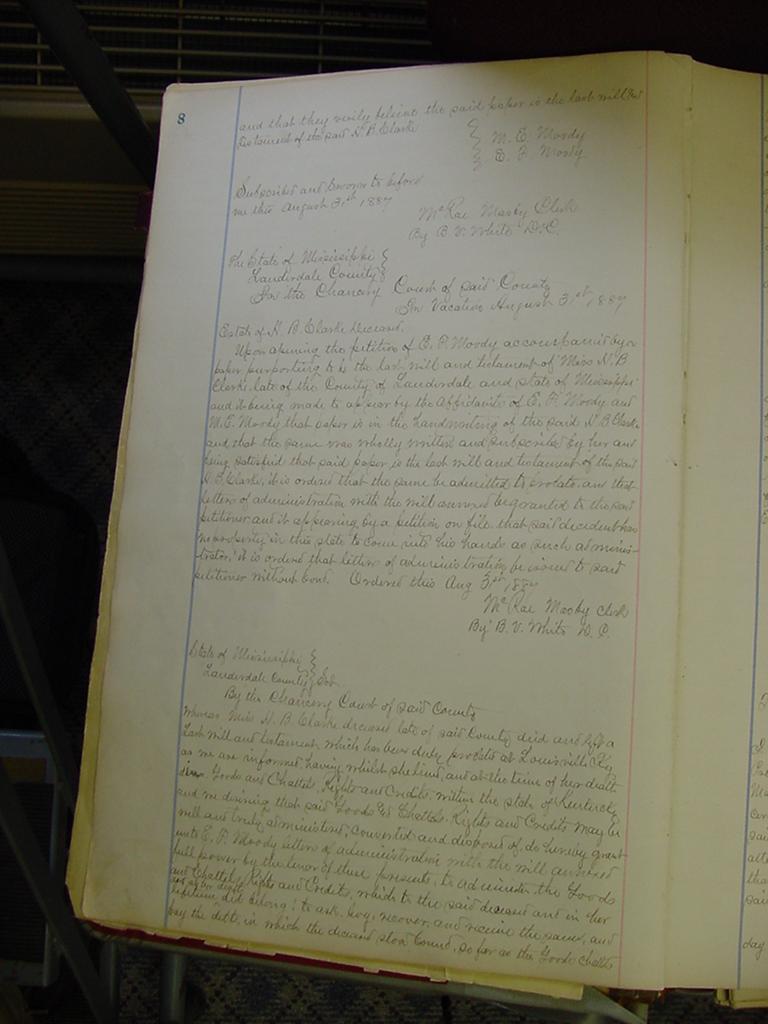 8
and that they verily believe the said paper is the last will and
testament of the said H. B. Clarke
M. E. Moody
E. F. Moody
Subscribed and sworn to before
me this August 31st 1887
McRae Mosby Clerk
By B. V. White D.C.
The State of Mississippi
Lauderdale County
For the Chancery Court of said County
In Vacation August 31st, 1887
Estate of H. B. Clarke Deceased.
Upon opening the petition of E. F. Moody accompanied by a
paper purporting to be the last will and testament of Miss H. B
Clarke late of the County of Lauderdale and state of Mississippi
and it being made to appear by the Affidavits of E. F. Moody and
M. E. Moody that paper is in the Handwriting of the said H. B. Clarke
and that the same was wholly written and subscribed by her and
being satisfied that said paper is the last will and testament of the said
H. B. Clarke, it is ordered that the same be admitted to probate, and that
letters of administration with the will annexed be granted to the said
petitioner and it appearing by a petition on file that said decedent has
no property in this state to come into his hands as such adminis-
trator, it is ordered that letters of administration be issued to said
petitioner without bond. Ordered this Aug 31st, 1887
McRae Mosby Clerk
By B. V. White D. C.
State of Mississippi
Lauderdale County
By the Chancery Court of said County
Whereas Miss H. B. Clarke deceased late of said County died and left a
Last will and testament which has been duly probate at Louisville Ky
as we are informed having whilst she lived, and at the time of her death
Goods and Chattels, Rights and Credits within the state of Kentucky
and we desiring that said Goods & Chattels, Rights and Credits may be
well and truly administered, converted and disposed of, do hereby grant
unto E. F. Moody letters of administration with the will annexed
full power by the tenor of these presents, to administer the Goods
and Chattels, Rights and Credits, which to the said deceased and in her
lifetime did belong; to ask, levy, recover, and receive the same, and
pay the debts, in which the deceased stood bound, so far as the Goods Chattels